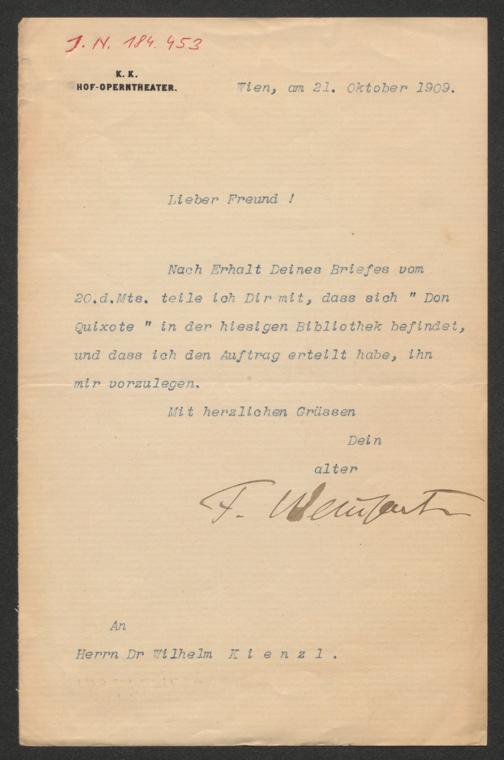 J. N. 184.453
K. K.
HOF-OPERNTHEATER.
Wien, am 21. Oktober 1909.
Lieber Freund !
Nach Erhalt Deines Briefes vom
20.d.Mts. teile ich Dir mit, dass sich " Don
Quixote " in der hiesigen Bibliothek befindet,
und dass ich den Auftrag erteilt habe, ihn
mir vorzulegen.
Mit herzlichen Grüssen
Dein
alter
F. Weingartn
An
Herrn Dr Wilhelm K i e n z l .